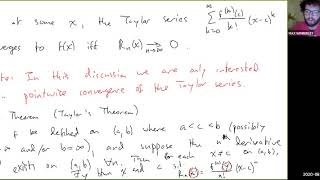 at some x, the Taylor series ∞ Σ k=0 f^(k)(c)/k! (x-c)^k
verges to f(x) iff R_n(x) → n→∞ 0.
to: In this discussion we are only interested
pointwise convergence of the Taylor series.
Theorem (Taylor's Theorem)
f be defined on (a,b) where a<c<b (possibly
and/or b=∞), and suppose the nth derivative
exists on (a,b) ∀n. Then for each x≠c on (a,b),
x and c s.t. R_n(x) = f^(n)(y)/n! (x-c)^n
2020-09